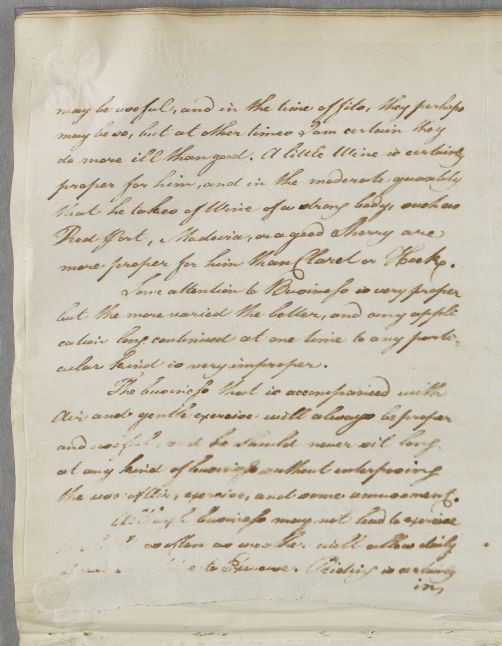 may be useful, and in the time of fits, they perhaps
may be so, but at other times I am certain they
do more ill than good. A little Wine is certainly
proper for him, and in the moderate quantity
that he takes of Wine of a strong body, such as
Red Port, Madeira, or a good Sherry are
more proper for him than Claret or Hock.
Some attention to Business is very proper
but the more varied the better, and any appli
cation long continued at one time to any parti-
cular kind is very improper.
The business that is accompanied with
Air and gentle exercise will always be proper
and useful, and he should never sit long
at any kind of business without interposing
the use of Air, exercise, and some amusement.
Although business may not lead to exercise
as often as weather will allow daily
to Exercise. Riding is certainly
in